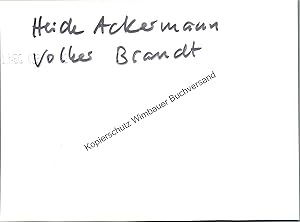 Heide Ackermann
Volker Brandt
Kopierschutz Wimbauer Buchversand